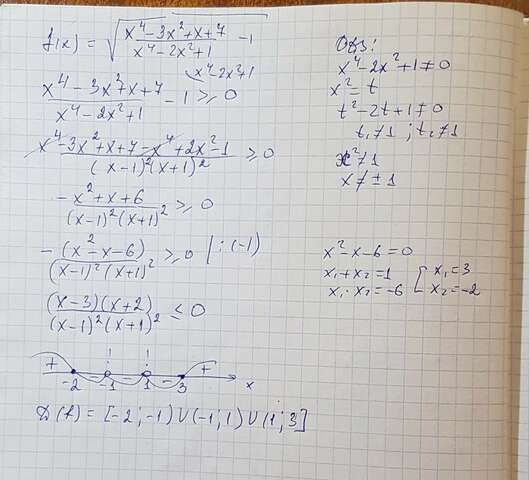 f(x) = √((x⁴-3x²+x+7)/(x⁴-2x²+1) - 1)
(x⁴-3x²+x+7)/(x⁴-2x²+1) - 1 ≥ 0
x⁴-2x²+1
(x⁴-3x²+x+7-x⁴+2x²-1)/((x-1)²(x+1)²) ≥ 0
(-x²+x+6)/((x-1)²(x+1)²) ≥ 0
-(x²-x-6)/((x-1)²(x+1)²) ≥ 0 | :(-1)
((x-3)(x+2))/((x-1)²(x+1)²) ≤ 0
+ - ! - ! - +
-2 -1 1 3 x
D(f) = [-2;-1)∪(-1;1)∪(1;3]
x⁴-2x²+1≠0
x²=t
t²-2t+1≠0
t₁≠1 ; t₂≠1
x²≠1
x≠±1
x²-x-6=0
x₁+x₂=1
x₁·x₂=-6
[x₁=3
x₂=-2